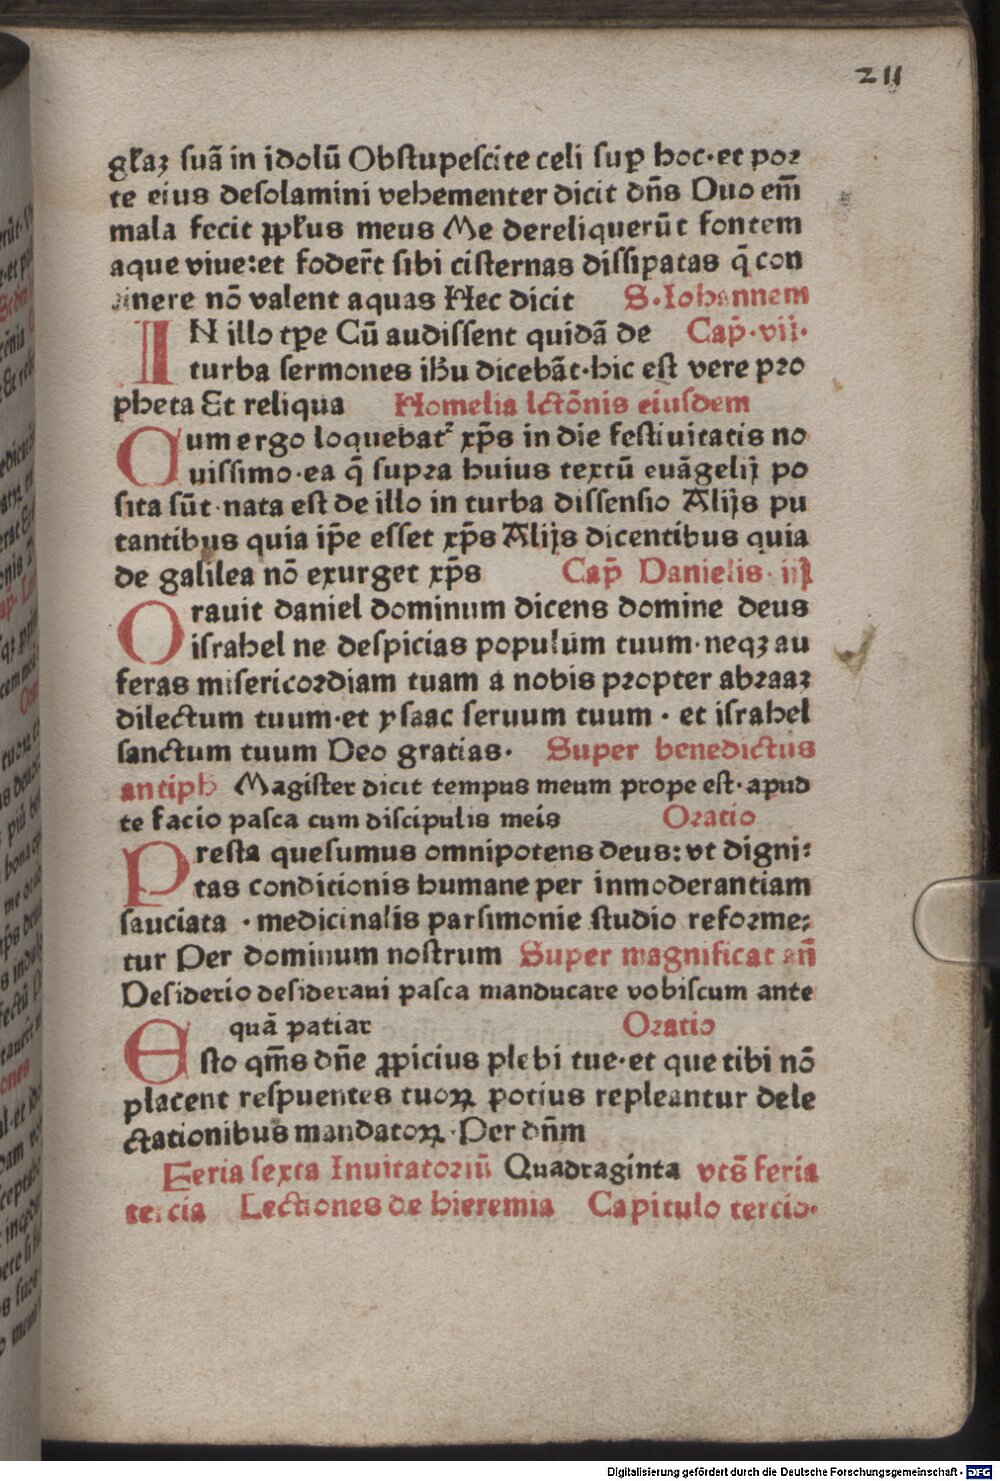 211
gl̄aꝫ suā in idolū Obstupescite celi suꝑ hoc·et por
te eius desolamini vehementer dicit dn̄s Duo em̄
mala fecit ꝓpl̄us meus Me dereliquerūt fontem
aque viue:et foder̄t sibi cisternas dissipatas q̄ con
tinere nō valent aquas Hec dicit S. Iohannem
IN illo tꝑe Cū audissent quidā de Cap̄·vij·
turba sermones ih̄u dicebāt·hic est vere pro
pheta Et reliqua Homelia lctōnis eiusdem
Cum ergo loquebat᷑ xp̄s in die festiuitatis no
uissimo·ea q̄ supra huius textū euāgelij po
sita sūt·nata est de illo in turba dissensio Alijs pu
tantibus quia ip̄e esset xp̄s Alijs dicentibus quia
de galilea nō exurget xp̄s Cap̄ Danielis· iij
Orauit daniel dominum dicens domine deus
israhel ne despicias populum tuum·neqꝫ au
feras misericordiam tuam a nobis propter abraaꝫ
dilectum tuum·et ysaac seruum tuum · et israhel
sanctum tuum Deo gratias· Super benedictus
antiph Magister dicit tempus meum prope est·apud
te facio pasca cum discipulis meis Oratio
Presta quesumus omnipotens deus:vt digni:
tas conditionis humane per inmoderantiam
sauciata ·medicinalis parsimonie studio reforme:
tur Per dominum nostrum Super magnificat an̄
Desiderio desideraui pasca manducare vobiscum ante
quā patiar Oratio
Esto qm̄s dn̄e ꝓpicius plebi tue·et que tibi nō
placent respuentes tuoꝝ potius repleantur dele
ctationibus mandatoꝝ·Per dn̄m
Feria sexta Inuitatoriū Quadraginta vts̄ feria
tercia Lectiones de hieremia Capitulo tercio·
Digitalisierung gefördert durch die Deutsche Forschungsgemeinschaft - DFG